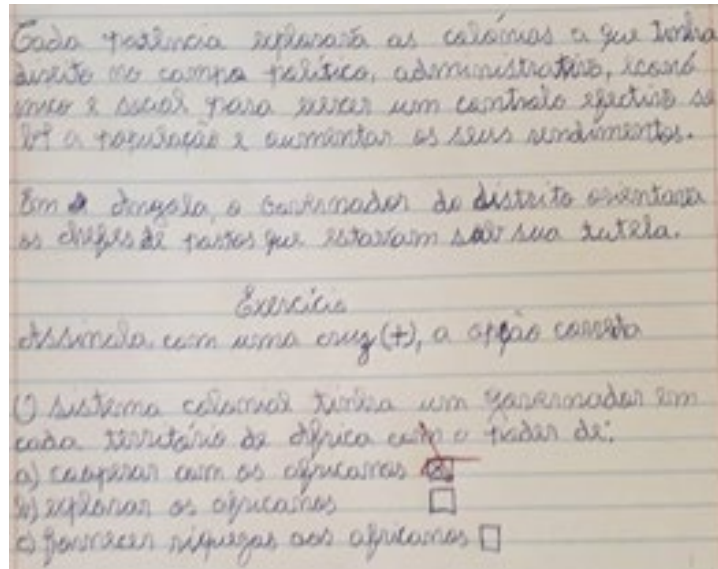 Cada potência explorará as colónias a que tinha
direito no campo político, administrativo, econó
mico e social para exercer um controlo efectivo so
bre a população e aumentar os seus rendimentos.
Em Angola, o Governador do distrito orientava
os chefes de postos que estavam sob sua tutela.
Exercício
Assinala com uma cruz (+), a opção correta
O sistema colonial tinha um governador em
cada território de África com o poder de:
a) cooperar com os africanos
b) explorar os africanos
c) fornecer riquezas aos africanos